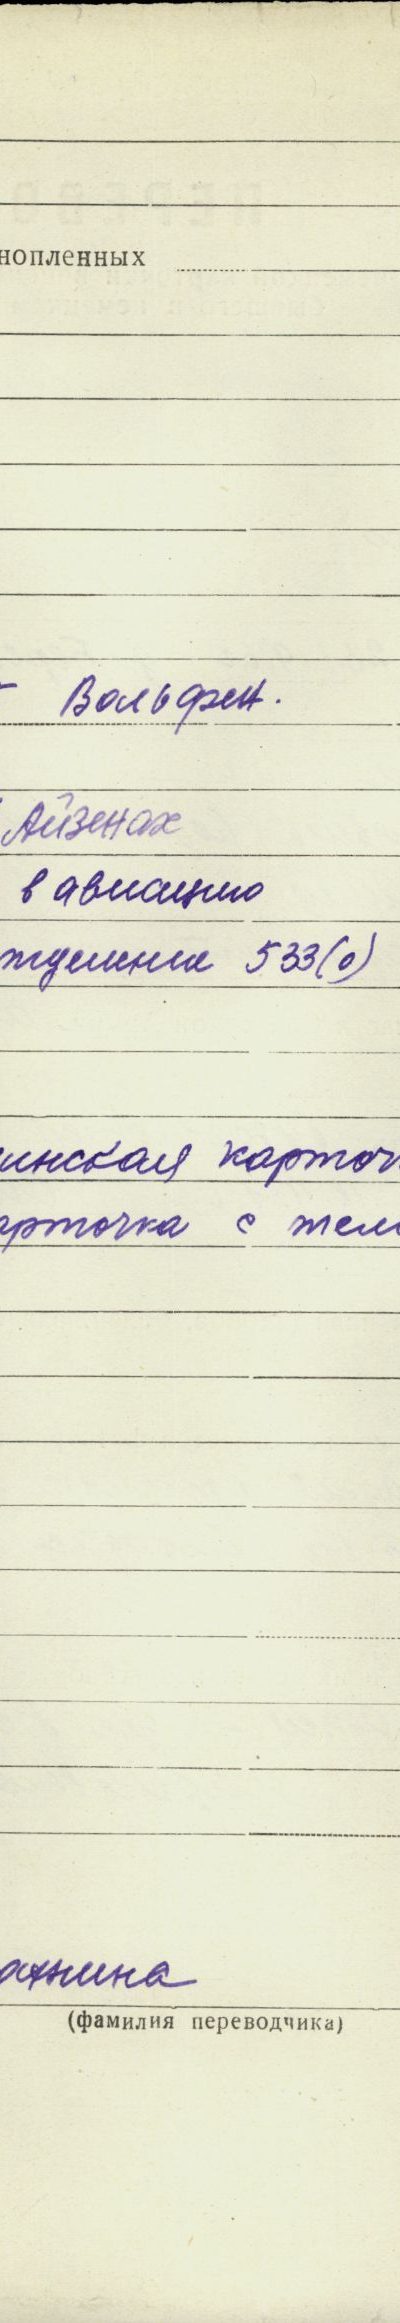 нопленных
Вольфен.
Айзенах
в авиацию
ждение 533(о)
инская карточ
арточка с тел
ахнина
(фамилия переводчика)